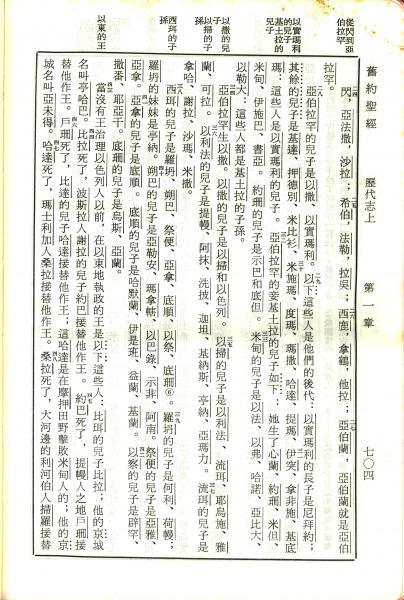 舊約聖經　歷代志上　第一章　七〇四
從閃到亞
伯拉罕
閃、亞法撒、沙拉;希伯、法勒、拉吳;西鹿、拿鶴、他拉;亞伯蘭,亞伯蘭就是亞伯
拉罕。
以實瑪利
的兒子
基土拉的
兒子
亞伯拉罕的兒子是以撒、以實瑪利。以下這些人是他們的後代:以實瑪利的長子是尼拜約;
其餘的兒子是基達、押德別、米比衫、米施瑪、度瑪、瑪撒、哈達、提瑪、伊突、拿非施、基底
瑪、這些人是以實瑪利的兒子。亞伯拉罕的妾基土拉的兒子如下:她生了心蘭、約珊、米但、
米甸、伊施巴、書亞。約珊的兒子是示巴和底但。米甸的兒子是以法、以弗、哈諾、亞比大、
以勒大:這些人都是基土拉的子孫。
以撒的兒
子
以掃的子
孫
亞伯拉罕生以撒。以撒的兒子是以掃和以色列。以掃的兒子是以利法、流珥、耶烏施、雅
蘭、可拉。以利法的兒子是提幔、阿抹、洗玻、迦坦、基納斯、亭納、亞瑪力。流珥的兒子是
拿哈、謝拉、沙瑪、米撒。
西珥的子
孫
西珥的兒子是羅坍、朔巴、祭便、亞拿、底順、以察、底珊⑥。羅坍的兒子是何利、荷幔;
羅坍的妹妹是亭納。朔巴的兒子是亞勒安、瑪拿轄、以巴錄、示非、阿南。祭便的兒子是亞雅、
亞拿。亞拿的兒子是底順。底順的兒子是哈默蘭、伊是班、益蘭、基蘭。以察的兒子是辟罕、
撒番、耶亞干。底珊的兒子是烏斯、亞蘭。
以東的王
當沒有王治理以色列人以前,在以東地執政的王是以下這些人:比珥的兒子比拉;他的京城
名叫亭哈巴。比拉死了,波斯拉人謝拉的兒子約巴接替他作王。約巴死了,提幔人之地戶珊接
替他作王。戶珊死了,比達的兒子哈達接替他作王;這哈達是在摩押田野擊敗米甸人的;他的京
城名叫亞未得。哈達死了,瑪士利加人桑拉接替他作王。桑拉死了,大河邊的利河伯人掃羅接替